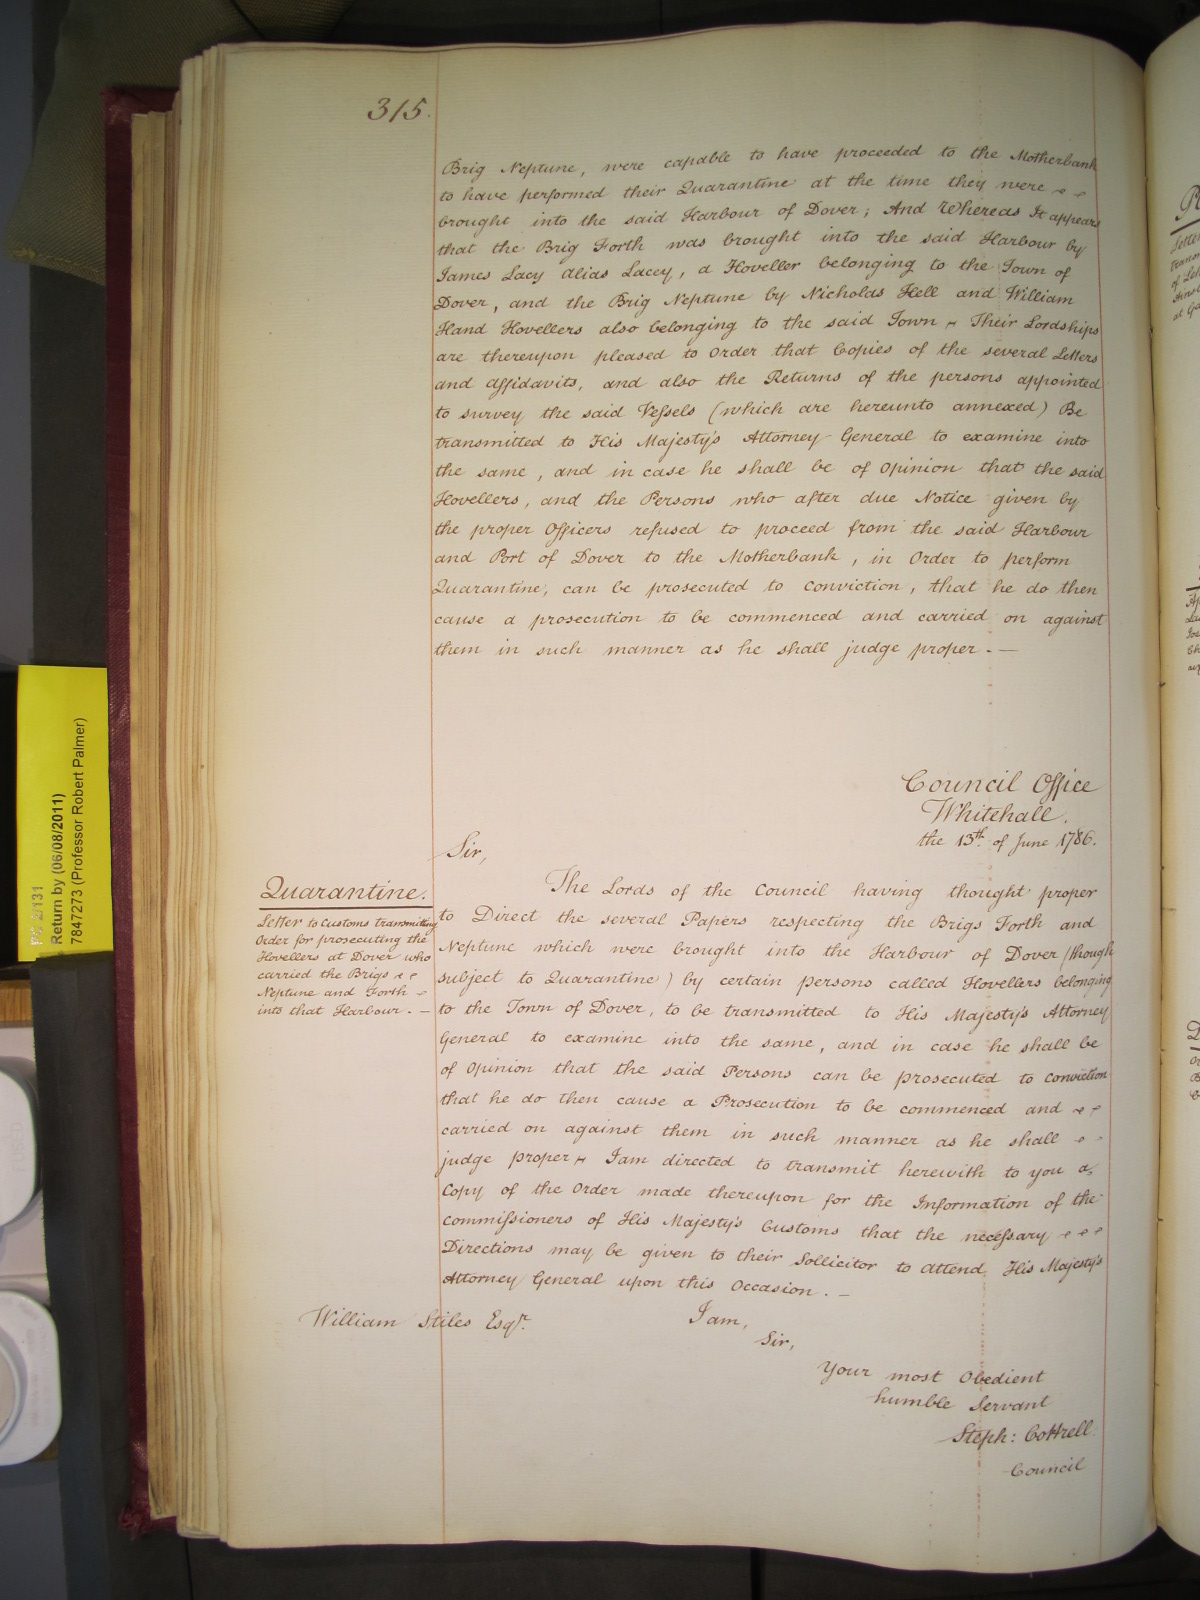 315.
Brig Neptune, were capable to have proceeded to the Motherbank
to have performed their Quarantine at the time they were
brought into the said Harbour of Dover; And Whereas It appears
that the Brig Forth was brought into the said Harbour by
James Lacy alias Lacey, a Hoveller belonging to the Town of
Dover, and the Brig Neptune by Nicholas Hell and William
Hand Hovellers also belonging to the said Town Their Lordships
are thereupon pleased to Order that Copies of the several Letters
and affidavits, and also the Returns of the persons appointed
to survey the said Vessels (which are hereunto annexed) Be
transmitted to His Majesty's Attorney General to examine into
the same, and in case he shall be of Opinion that the said
Hovellers, and the Persons who after due Notice given by
the proper Officers refused to proceed from the said Harbour
and Port of Dover to the Motherbank, in Order to perform
Quarantine, can be prosecuted to conviction, that he do then
cause a prosecution to be commenced and carried on against
them in such manner as he shall judge proper. —
Council Office
Whitehall.
the 13th. of June 1786.
Sir,
Quarantine.
Letter to Customs transmitting
Order for prosecuting the
Hovellers at Dover who
carried the Brigs
Neptune and Forth
into that Harbour. —
The Lords of the Council having thought proper
to Direct the several Papers respecting the Brigs Forth and
Neptune which were brought into the Harbour of Dover (though
subject to Quarantine) by certain persons called Hovellers belonging
to the Town of Dover, to be transmitted to His Majesty's Attorney
General to examine into the same, and in case he shall be
of Opinion that the said Persons can be prosecuted to conviction
that he do then cause a Prosecution to be commenced and
carried on against them in such manner as he shall
judge proper I am directed to transmit herewith to you a
Copy of the Order made thereupon for the Information of the
Commissioners of His Majesty's Customs that the necessary
Directions may be given to their Sollicitor to attend His Majesty's
Attorney General upon this Occasion. —
William Stiles Esqr.
I am,
Sir,
Your most Obedient
humble Servant
Steph: Cottrell
Council
PC 2/131
Return by (06/08/2011)
7847273 (Professor Robert Palmer)